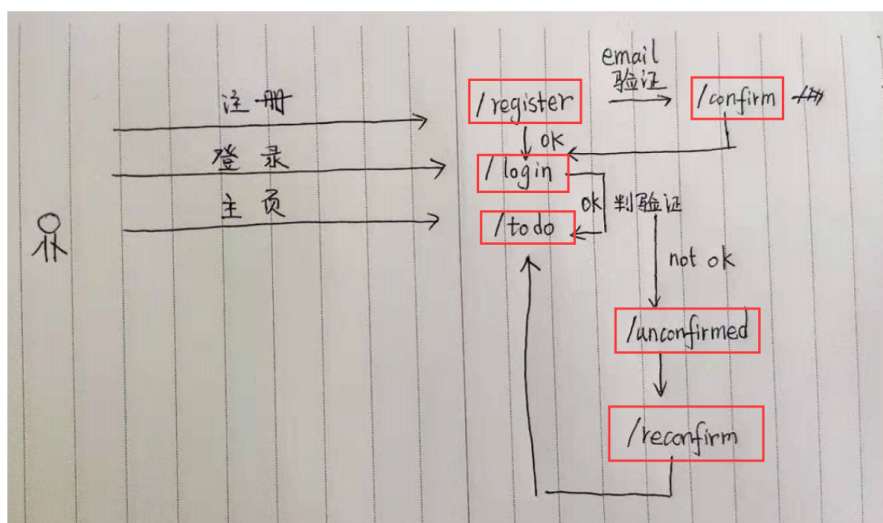 注册
登录
主页
/register
email
验证
/confirm
ok
/login
ok
判验证
/todo
not ok
/unconfirmed
/reconfirm